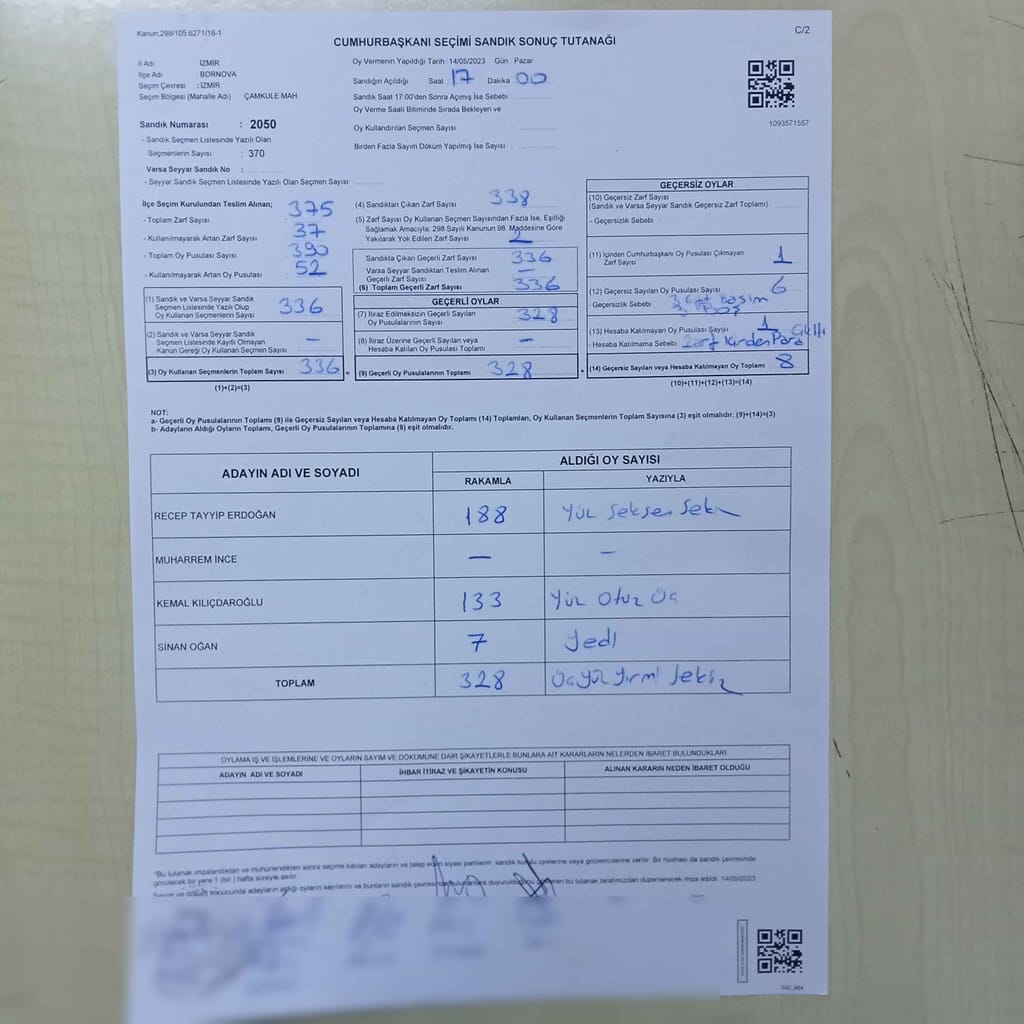 Kanun.298/105.6271/18-1
C/2
CUMHURBAŞKANI SEÇİMİ SANDIK SONUÇ TUTANAĞI
İl Adı İZMİR
İlçe Adı BORNOVA
Seçim Çevresi : İZMİR
Seçim Bölgesi (Mahalle Adı) ÇAMKULE MAH.
Oy Vermenin Yapıldığı Tarih : 14/05/2023 Gün : Pazar
Sandığın Açıldığı Saat 17 Dakika 00
Sandık Saat 17:00'den Sonra Açılmış İse Sebebi
Oy Verme Saati Bitiminde Sırada Bekleyen ve
Oy Kullandırılan Seçmen Sayısı :
Birden Fazla Sayım Döküm Yapılmış İse Sayısı :
1093571557
Sandık Numarası : 2050
- Sandık Seçmen Listesinde Yazılı Olan
Seçmenlerin Sayısı : 370
Varsa Seyyar Sandık No :
- Seyyar Sandık Seçmen Listesinde Yazılı Olan Seçmen Sayısı:
İlçe Seçim Kurulundan Teslim Alınan;
- Toplam Zarf Sayısı : 375
- Kullanılmayarak Artan Zarf Sayısı : 37
- Toplam Oy Pusulası Sayısı : 390
- Kullanılmayarak Artan Oy Pusulası : 52
(1) Sandık ve Varsa Seyyar Sandık
Seçmen Listesinde Yazılı Olup
Oy Kullanan Seçmenlerin Sayısı 336
(2) Sandık ve Varsa Seyyar Sandık
Seçmen Listesinde Kayıtlı Olmayan
Kanun Gereği Oy Kullanan Seçmen Sayısı –
(3) Oy Kullanan Seçmenlerin Toplam Sayısı 336
(1)+(2)=(3)
(4) Sandıktan Çıkan Zarf Sayısı 338
(5) Zarf Sayısı Oy Kullanan Seçmen Sayısından Fazla İse, Eşitliği
Sağlamak Amacıyla, 298 Sayılı Kanunun 98. Maddesine Göre
Yakılarak Yok Edilen Zarf Sayısı 2
Sandıkla Çıkan Geçerli Zarf Sayısı 336
Varsa Seyyar Sandıktan Teslim Alınan
Geçerli Zarf Sayısı –
(6) Toplam Geçerli Zarf Sayısı 336
GEÇERLİ OYLAR
(7) İtiraz Edilmeksizin Geçerli Sayılan
Oy Pusulalarının Sayısı 328
(8) İtiraz Üzerine Geçerli Sayılan veya
Hesaba Katılan Oy Pusulası Toplamı –
= (9) Geçerli Oy Pusulalarının Toplamı 328
GEÇERSİZ OYLAR
(10) Geçersiz Zarf Sayısı
(Sandık ve Varsa Seyyar Sandık Geçersiz Zarf Toplamı)
- Geçersizlik Sebebi
(11) İçinden Cumhurbaşkanı Oy Pusulası Çıkmayan
Zarf Sayısı 1
(12) Geçersiz Sayılan Oy Pusulası Sayısı 6
- Geçersizlik Sebebi 3 Çift Basım
3 Boş
(13) Hesaba Katılmayan Oy Pusulası Sayısı 1
- Hesaba Katılmama Sebebi Zarf İçirden Para Çıktı
+ (14) Geçersiz Sayılan veya Hesaba Katılmayan Oy Toplamı 8
(10)+(11)+(12)+(13)=(14)
NOT:
a- Geçerli Oy Pusulalarının Toplamı (9) ile Geçersiz Sayılan veya Hesaba Katılmayan Oy Toplamı (14) Toplamları, Oy Kullanan Seçmenlerin Toplam Sayısına (3) eşit olmalıdır. (9)+(14)=(3)
b- Adayların Aldığı Oyların Toplamı, Geçerli Oy Pusulalarının Toplamına (9) eşit olmalıdır.
ADAYIN ADI VE SOYADI
ALDIĞI OY SAYISI
RAKAMLA YAZIYLA
RECEP TAYYİP ERDOĞAN 188 Yüz Seksen Sekiz
MUHARREM İNCE – –
KEMAL KILIÇDAROĞLU 133 Yüz Otuz Üç
SİNAN OĞAN 7 Yedi
TOPLAM 328 Üçyüz yirmi sekiz
OYLAMA İŞ VE İŞLEMLERİNE VE OYLARIN SAYIM VE DÖKÜMÜNE DAİR ŞİKAYETLERLE BUNLARA AİT KARARLARIN NELERDEN İBARET BULUNDUKLARI
ADAYIN ADI VE SOYADI İHBAR İTİRAZ VE ŞİKAYETİN KONUSU ALINAN KARARIN NEDEN İBARET OLDUĞU
"Bu tutanak imzalandıktan ve mühürlendikten sonra seçime katılan adayların ve talep eden siyasi partilerin sandık kurulu üyelerine veya gözlemcilerine verilir. Bir nüshası da sandık çevresinde
görülecek bir yere 1 (bir) hafta süreyle asılır.
Sayım ve döküm sonucunda adayların aldığı oyların sayılarını ve bunların sandık çevresinde bulunanlara duyurulduğunu gösteren bu tutanak tarafımızdan düzenlenerek imza edildi. 14/05/2023